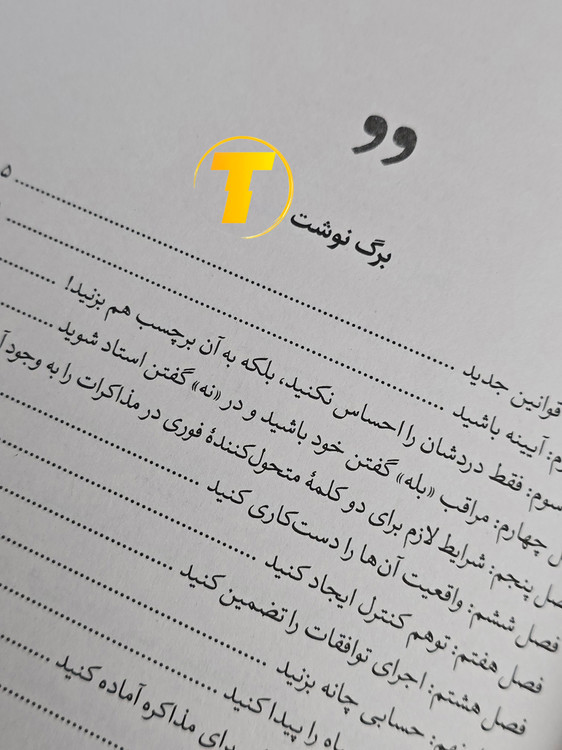 ”
T
برگ نوشت
قوانین جدید ........ ۵
آیینه باشید ........
سوم: فقط دردشان را احساس نکنید، بلکه به آن برچسب هم بزنید! ........
چهارم: مراقب «بله» گفتن خود باشید و در «نه» گفتن استاد شوید ........
پنجم: شرایط لازم برای دو کلمهٔ متحول‌کنندهٔ فوری در مذاکرات را به وجود
فصل ششم: واقعیت آن‌ها را دست‌کاری کنید ........
فصل هفتم: توهم کنترل ایجاد کنید ........
فصل هشتم: اجرای توافقات را تضمین کنید ........
حسابی چانه بزنید ........
را پیدا کنید ........
برای مذاکره آماده کنید ........